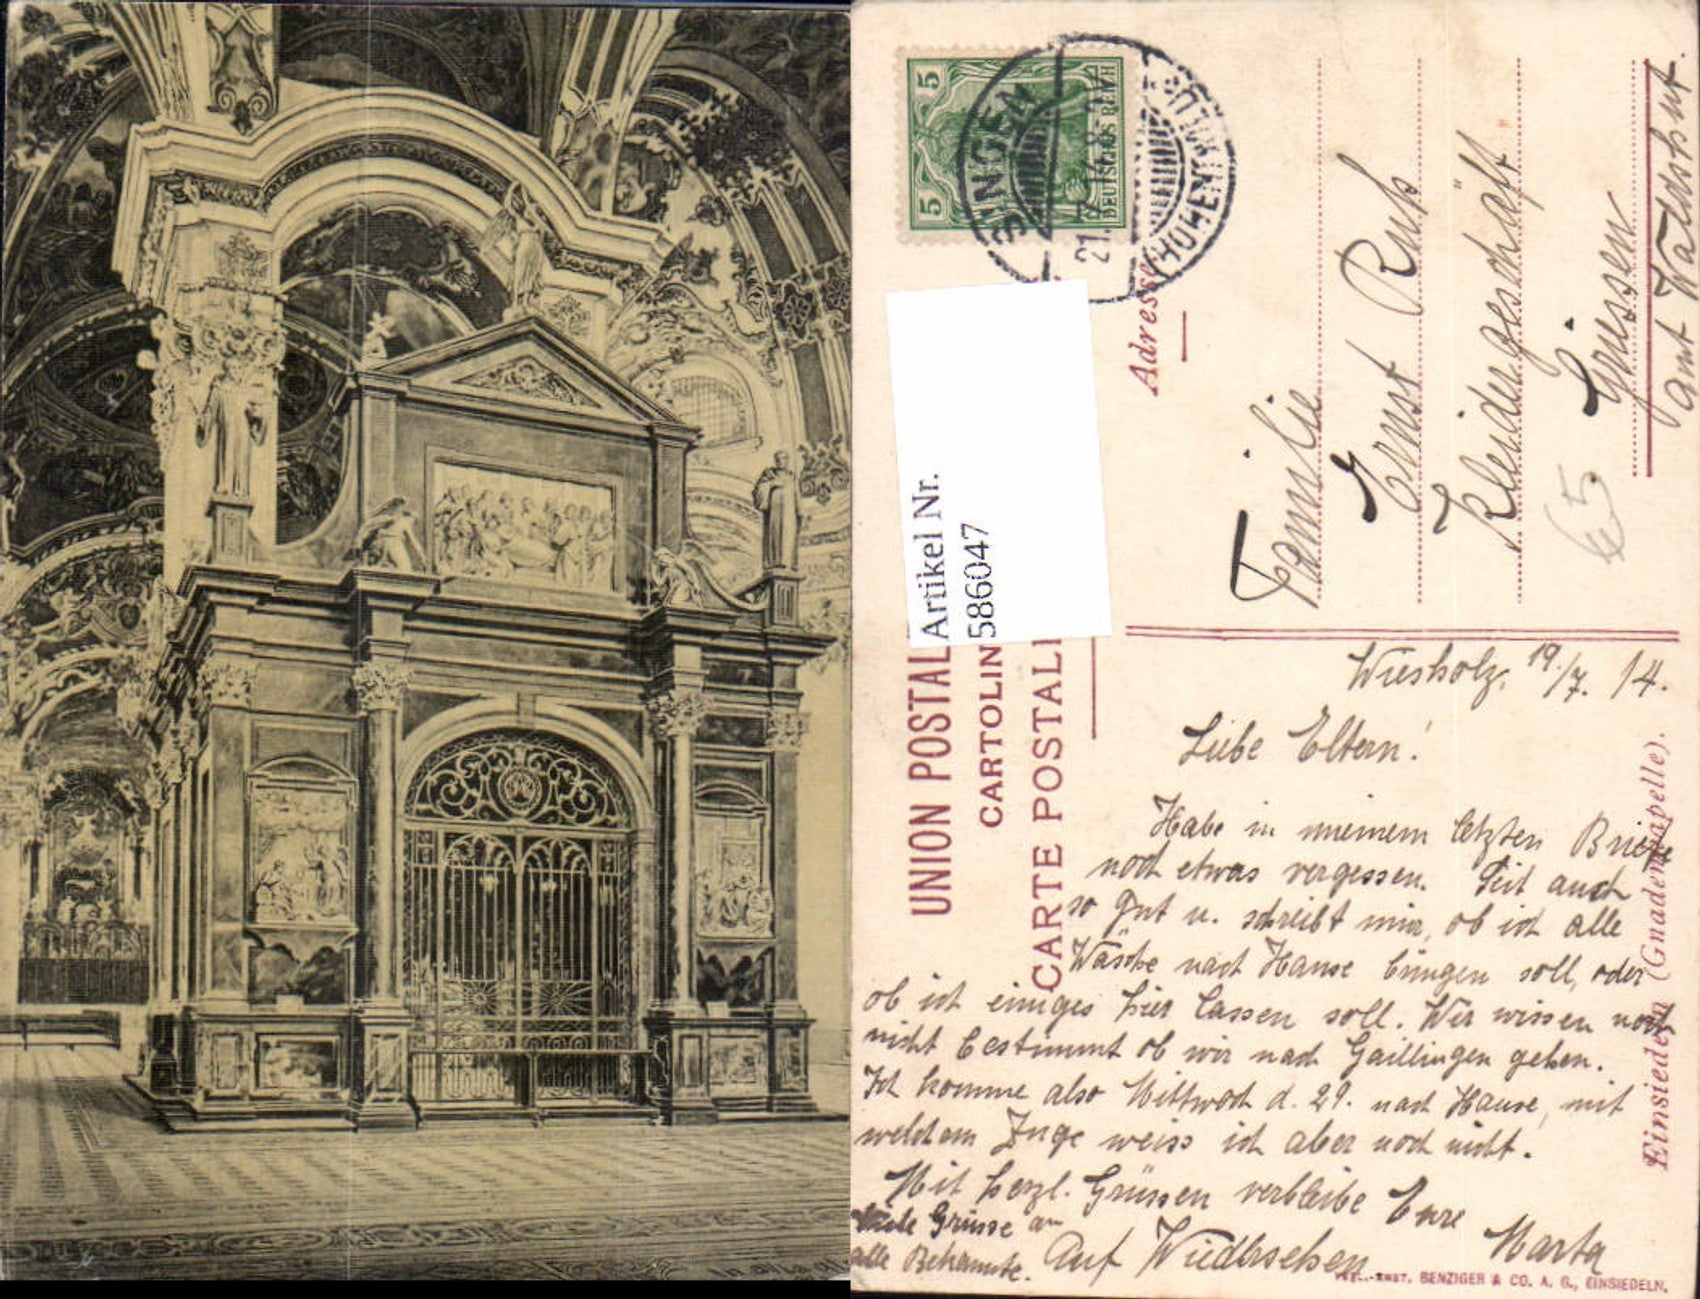 5 5
5
DEUTSCHES REICH
SINGEN
21.7.
(HOHENTWIEL)
Artikel Nr.
586047
UNION POSTAL
CARTOLIN
CARTE POSTALE
Adresse
Familie
Ernst Ruß
Kleidergeschäft
Griessen
amt Waldshut.
€5
Wiesholz, 19./7. 14.
Liebe Eltern!
Habe in meinem letzten Briefe
noch etwas vergessen. Seit auch
so gut u. schreibt mir, ob ich alle
Wäsche nach Hause bringen soll, oder
ob ich einiges hier lassen soll. Wir wissen noch
nicht bestimmt ob wir nach Gaillingen gehen.
Ich komme also Mittwoch d. 29. nach Hause, mit
welchem Zuge weiss ich aber noch nicht.
Mit herzl. Grüssen verbleibe Eure
Marta
Viele Grüsse an
alle Bekannte. Auf Wiedersehen
Einsiedeln (Gnadenkapelle).
BENZIGER & CO. A. G., EINSIEDELN.